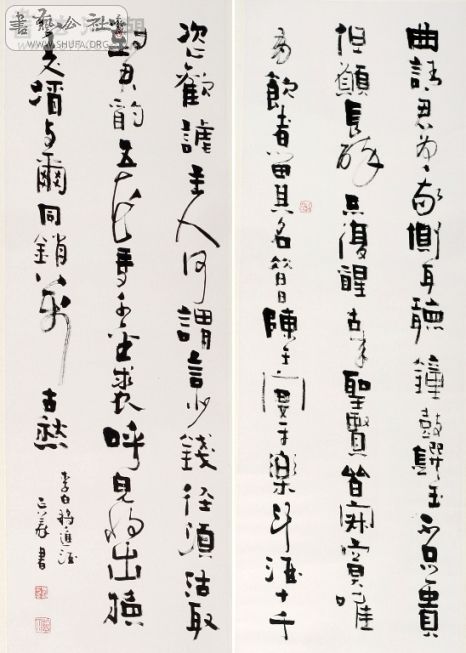 書藝公社
WWW.SHUFA.ORG
曲請君為我側耳聽鐘鼓饌玉不足貴
但願長醉不復醒古來聖賢皆寂寞唯
有飲者留其名昔日陳王宴平樂斗酒十千
恣歡謔主人何謂言少錢徑須沽取
對君酌五花馬千金裘呼兒將出換
美酒與爾同銷萬古愁
李白將進酒
書